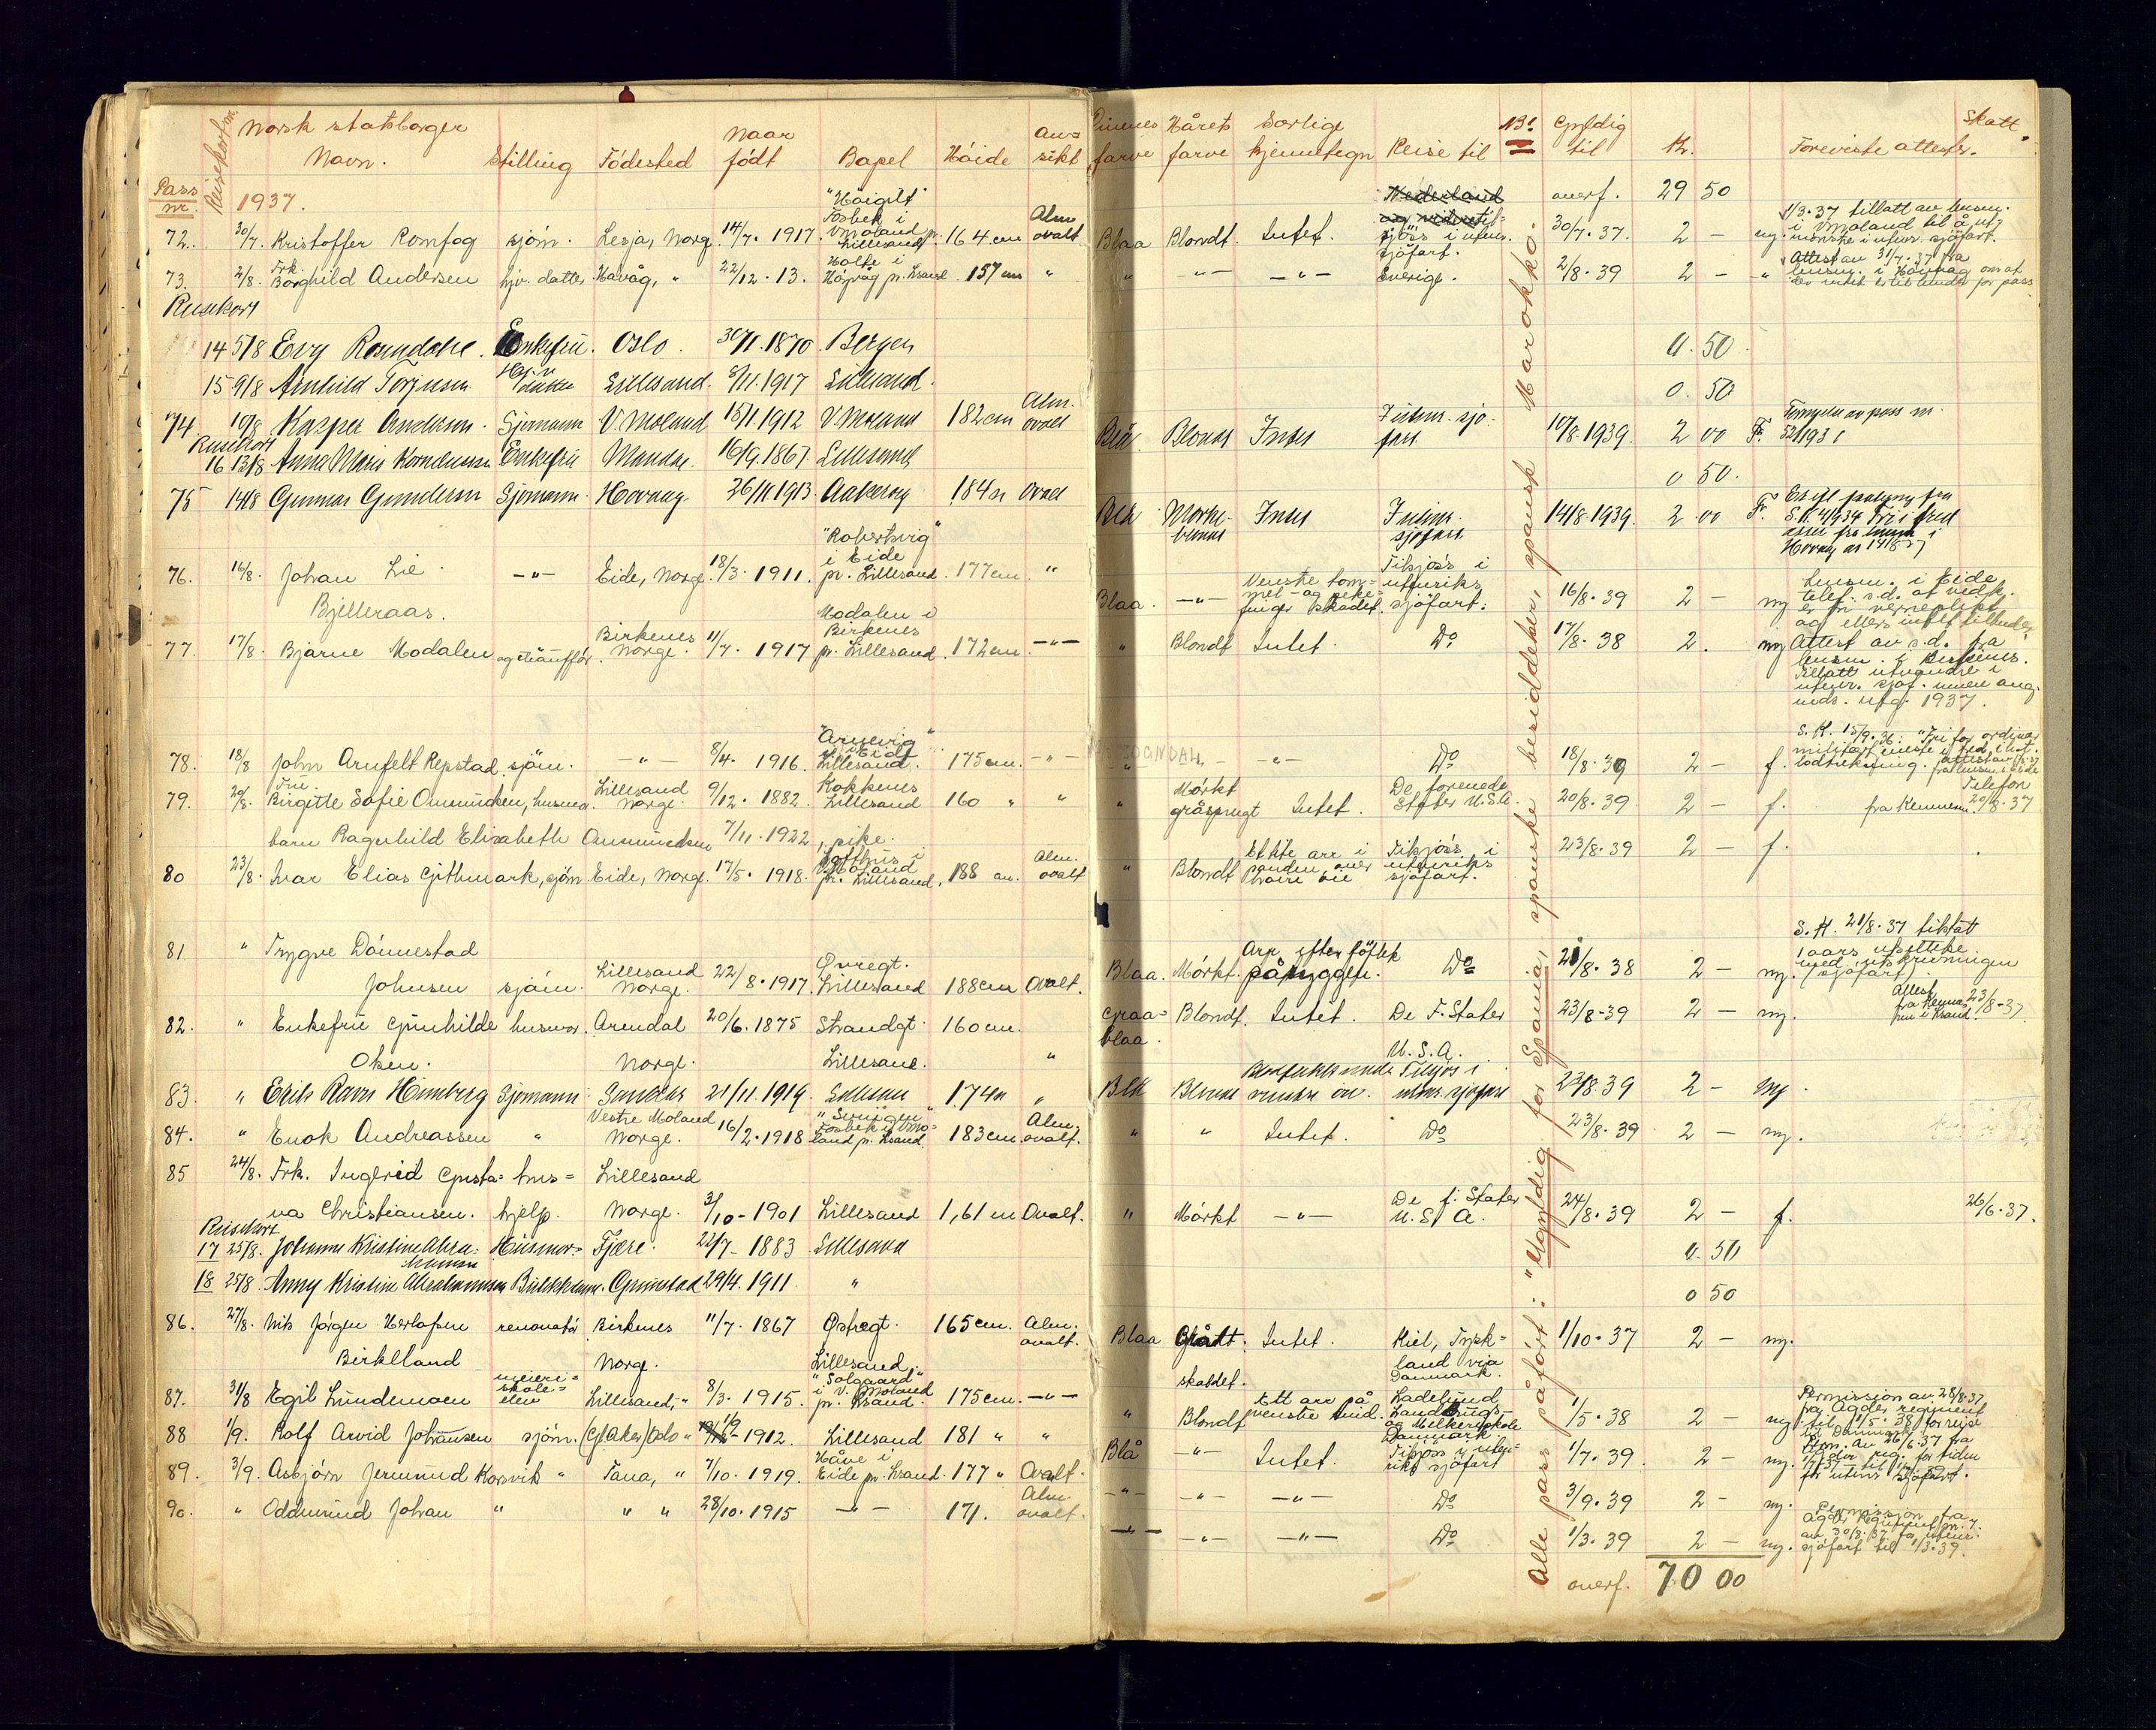 Norsk statsborger
Navn. Stilling Födested Naar födt Bopel Höide An=sikt Öinenes farve Hårets farve Særlige kjennetegn Reise til NB! Gyldig til Kr. Foreviste attester. Skatt
Pass nr. Reisekort nr. 1937. overf. 29 50
72. 30/7. Kristoffer Romfog sjöm. Lesja, Norg. 14/7. 1917. "Höigilt" Fosbek i V Moland p. Lillesand 164 cm Alm. ovalt Blaa Blondt. Intet. Nederland og videre til= sjös i utenr. sjöfart. 30/7. 37. 2 — ny. 1/3. 37 tillatt av lensm. i V Moland til å utmönstre i utenr. sjöfart.
73. 2/8. Frk. Borghild Andersen hjv. datter Havåg, " 22/12. 13. Holte i Hövåg pr. Lsand. 157 cm " " —"— —"— Sverige. 2/8. 39 2 — " Attest av 31/7. 37 fra lensm. i Hövaag om at der intet er til hinder for pass
Reisekort
14 5/8 Evy Enkefru. Oslo. 30/1. 1870. Bergen 0. 50
15 9/8 Arnhild Torjusen Hj.v. datter Lillesand. 8/11. 1917 Lillesand. 0. 50
74 10/8 Kasper Andersen Sjømann V. Moland 15/1 1912 V. Moland 182 cm Alm. ovalt Blå. Blondt Intet Utenr. sjøfart. 10/8. 1939. 2 00 F.
Reisekort
16 13/8 Anna Marie Korneliussen Enkefru Mandal. 16/9. 1867. Lillesand 0 50.
75 14/8 Gunnar Gundersen Sjømann. Hovaag 26/11 1913. Aakerøy 184 Oval Blå Mørke-blondt Intet Utenr. sjøfart. 14/8. 1939. 2 00 F.
76. 16/8. Johan Lie —"— Eide, Norge. 18/3. 1911. "Robertsvig" i Eide pr. Lillesand. 177 cm. " Blaa. —"— Venstre tom=mel- og peke=finger skadet. Tilsjös i utenriks sjöfart. 16/8. 39 2 — ny Lensm. i Eide telef. s.d. at vedk. er fri verneplikt og ellers intet tilhinder.
Bjelleraas.
77. 17/8. Bjarne Modalen og chauffør. Birkenes Norge. 11/7. 1917 Modalen i Birkenes pr. Lillesand. 172 cm. —"— " Blondt Intet. Do 17/8. 38 2. ny Attest av s.d. fra lensm. i Birkenes. Tillatt utvandre i utenr. sjöf. uten ang. 1937.
78. 18/8 John Arnfelt Repstad. sjöm. —"— 8/4. 1916. "Arnevig" i Eide Lillesand. 175 cm. —"— SOGNDAL " —"— Do 18/8. 39 2 — f. S. K. 15/9. 36: "Fri for ordinær militærtjeneste i fred, ihht. lodtrekning.
79. 20/8. Fru. Birgitte Sofie Omundsen, husmor. Lillesand Norge. 9/12. 1882. Kokkenes Lillesand 160 " " " Mörkt gråsprengt Intet. De forenede Stater U.S.A. 20/8. 39. 2 — f. Telefon fra Kemneren 20/8. 37
barn Ragnhild Elisabeth Omundsen 7/11. 1922, pike.
80 23/8. Ivar Elias Gitmark, sjöm Eide, Norge. 17/5. 1918. V. Moland pr. Lillesand. 188 cm. Alm. ovalt " Blondt Et lite arr i panden over höire öie Tilsjös i utenriks sjöfart. 23/8. 39 2 — f.
81 " Trygve Dönnestad
Johnsen sjöm. Lillesand Norge. 22/8. 1917. Øvregt. Lillesand 188 cm Ovalt. Blaa. Mörkt. Arr efter föflek på ryggen. Do 21/8. 38 2 — ny. S. K. 21/8. 37 tilstått 1 aars utsettelse med utskrivningen (sjöfart).
82. " Enkefru Gunhilde husmor. Arendal 20/6. 1875 Strandgt. 160 cm. Graa=blaa. Blondt. Intet. De F. Stater 23/8-39 2 — ny. Attest fra Kemneren i Lsand. 23/8-37.
Olsen. Norge. Lillesand. " U. S. A.
83. " Erik Ravn Himberg Sjømann 21/11. 1919. Lillesand 174 " Blå Blondt Tilsjøs i utenr. sjøfart 23/8 39 2 — ny.
84. " Enok Andreassen " Vestre Moland Norge. 16/2. 1918 Fosbek i V.Mo=land pr. Lsand. 183 cm. Alm. ovalt. " " Intet. Do 23/8. 39 2 — ny.
85 24/8. Frk. Ingerid Gusta= hus= Lillesand
va Christiansen. hjelp. Norge. 3/10-1901 Lillesand 1,61 m Ovalt. " Mörkt —"— De f. Stater U.S.A. 24/8. 39 2 — f. 26/6. 37.
Reisekort
17 25/8. Johanne Kristine Abra=hamsen Husmor. Fjære. 22/7-1883 Lillesand 0. 50
18 25/8 Anny Kristine Abrahamsen Grimstad 29/4. 1911 " 0 50
86. 27/8. Nils Jörgen Herlofsen renovatör. Birkenes 11/7. 1867 Østregt. 165 cm. Alm. ovalt. Blaa Grått. Intet. Kiel, Tysk=land via Danmark. 1/10. 37 2 — ny.
Birkeland Norge. Lillesand. skaldet.
87. 31/8 Egil Lundemoen meieri=skole=elev Lillesand, " 8/3. 1915. "Solgaard" i V. Moland pr. Lsand. 175 cm. —"— " Blondt Ett arr på venstre kind. Ladelund Landbrugs- og Melkeriskole Danmark 1/5. 38 2 — ny Permission av 28/8. 37 fra Agder regiment til 1/5. 38 for reise til Danmark.
88 1/9. Rolf Arvid Johansen sjöm. (V. Aker) Oslo " 1912. Lillesand 181 " " Blå —"— Intet. Tilsjös i uten=riks sjöfart 1/7. 39. 2 — ny. Perm. av 26/6. 37 fra Agder reg. for tiden for utenr. sjöfart.
89. 3/9. Asbjörn Jermund Korsvik " Tana, " 7/10. 1919. Håve i Eide pr. Lsand. 177 " Ovalt. —"— —"— —"— Do 3/9. 39 2 — ny.
90. " Oddmund Johan " " " 28/10. 1915 —"— 171. Alm. ovalt. —"— —"— —"— Do 1/3. 39 2 — ny. Permisjon fra Agder Regiment nr. 7. av 30/8. 37 for utenr. sjöfart til 1/3. 39.
overf. 70 00
Alle pass påfört: "Ugyldig for Spania, spanske besiddelser, spansk Marokko.